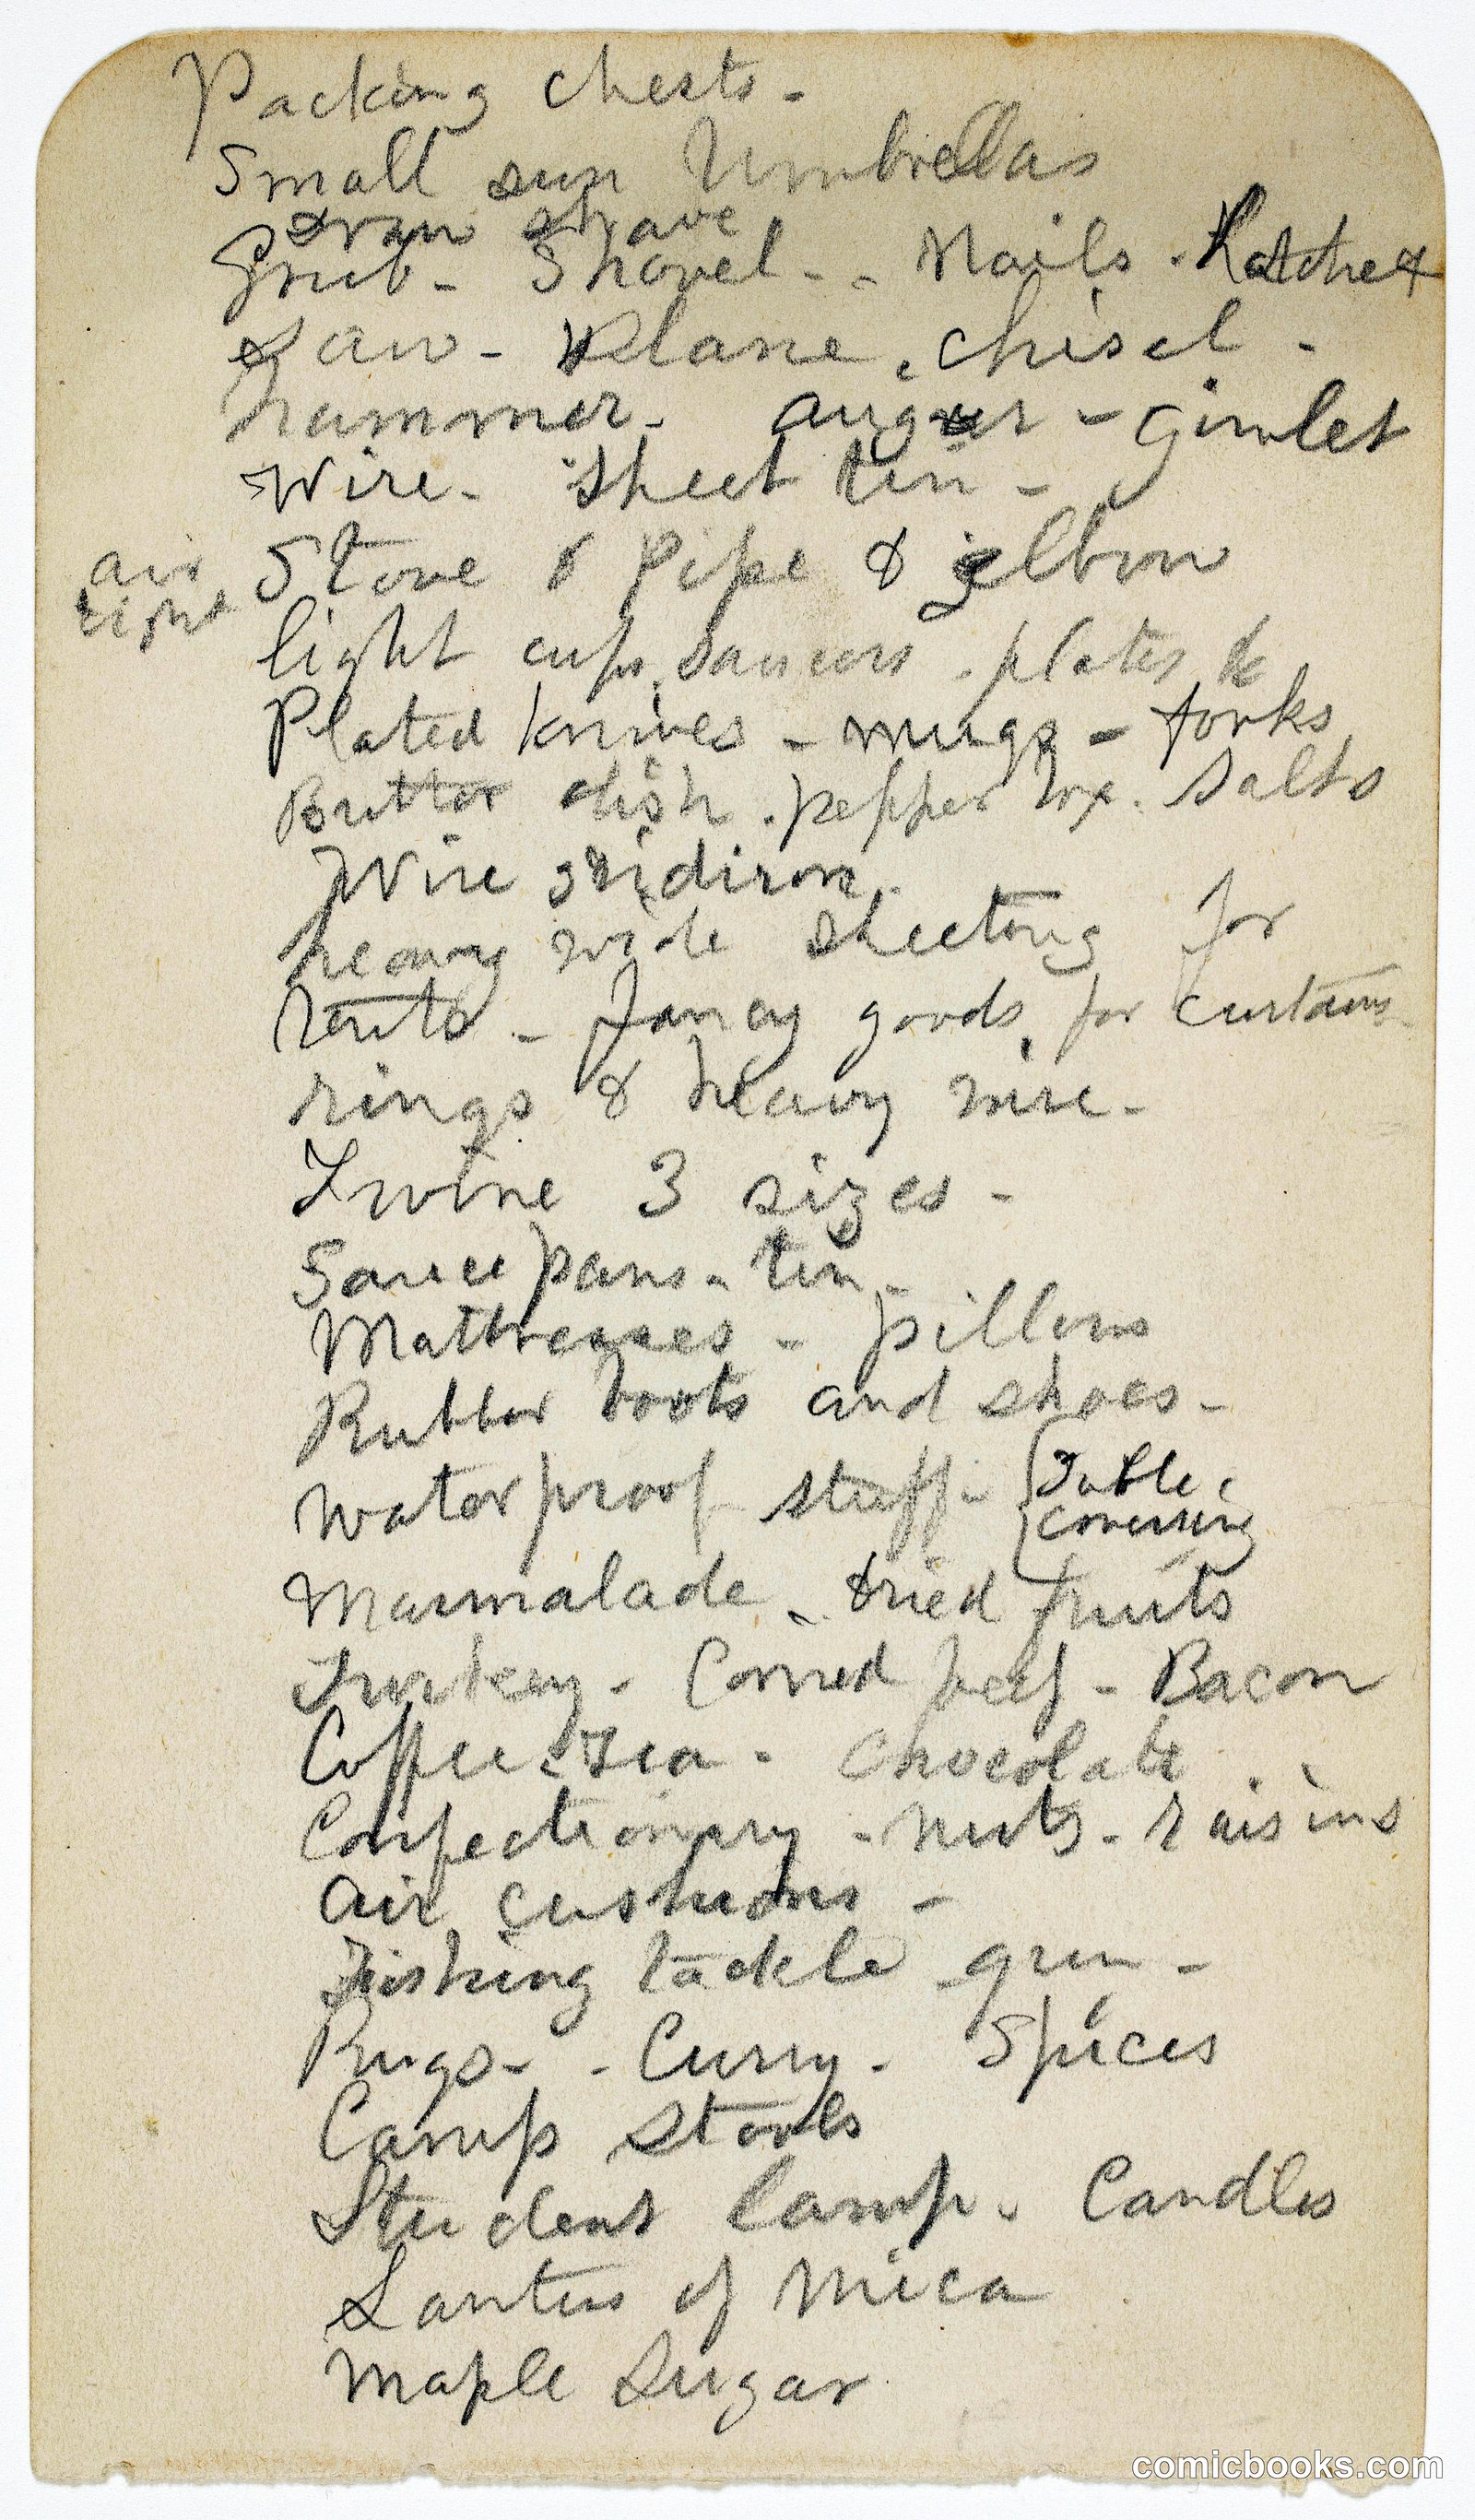 Packing chests -
Small sun Umbrellas
Draw shave
Grub - Shovel - - Nails - Hatchet
Saw - Plane, chisel -
hammer - auger - Gimlet
Wire - Sheet tin -
air tight
Stove & Pipe & elbow
light cups, saucers - plates &c
Plated knives - mugs - forks
Butter dish - pepper box - Salts
Wire gridiron -
heavy wide sheeting for
tents - Fancy goods for curtains
rings & heavy wire -
Twine 3 sizes -
Sauce pans - tin -
Mattresses - pillows
Rubber boots and shoes -
Waterproof stuff - {Table
covering
Marmalade - dried fruits
Turkey - Corned beef - Bacon
Coffee - Tea - Chocolate
Confectionary - nuts - raisins
Air cushions -
Fishing tackle - gun -
Rugs - - Curry - Spices
Camp Stools
Student lamp - Candles
of Mica
Maple Sugar
comicbooks.com